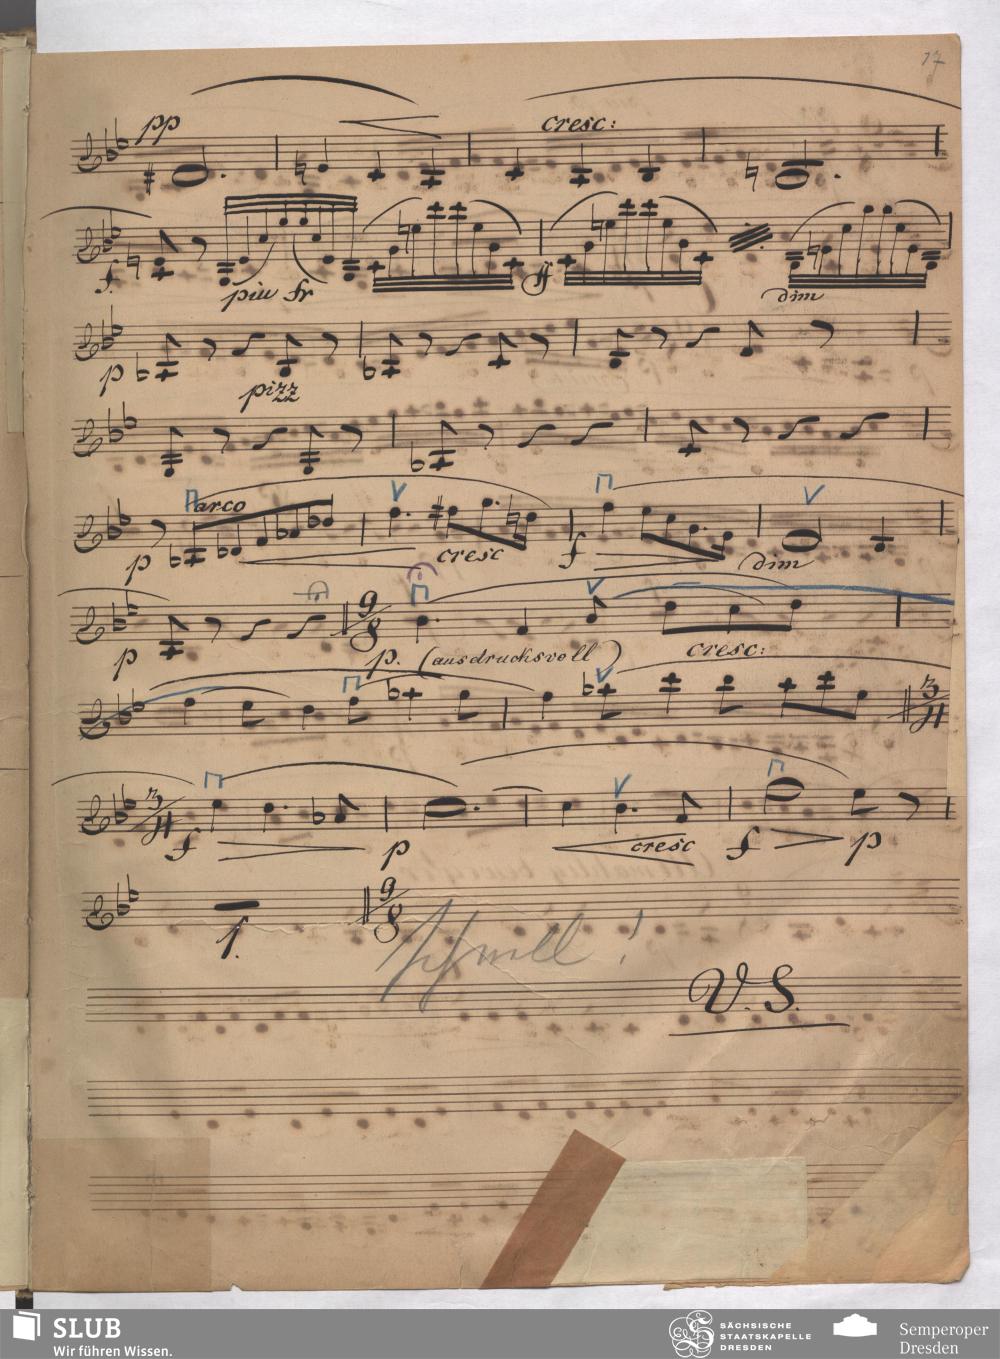 17
pp cresc:
f. piu fr ff dim
p pizz
arco
p cresc f dim
9 8
p p. (ausdrucksvoll) cresc:
3 4
3 4
f p cresc f p
9 8
1.
Schnell!
V. S.
SLUB
Wir führen Wissen.
SÄCHSISCHE
STAATSKAPELLE
DRESDEN
Semperoper
Dresden